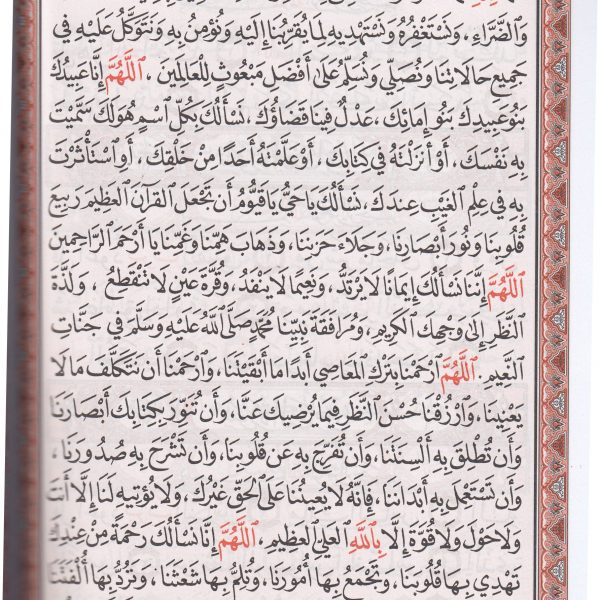 وَالضَّرَّاءِ، وَنَسْتَغْفِرُهُ وَنَسْتَهْدِيهِ لِمَا يُقَرِّبُنَا إِلَيْهِ وَنُؤْمِنُ بِهِ وَنَتَوَكَّلُ عَلَيْهِ فِي
جَمِيعِ حَالَاتِنَا وَنُصَلِّي وَنُسَلِّمُ عَلَى أَفْضَلِ مَبْعُوثٍ لِلْعَالَمِينَ، اَللَّهُمَّ إِنَّا عَبِيدُكَ
بَنُو عَبِيدِكَ بَنُو إِمَائِكَ، عَدْلٌ فِينَا قَضَاؤُكَ، نَسْأَلُكَ بِكُلِّ اسْمٍ هُوَ لَكَ سَمَّيْتَ
بِهِ نَفْسَكَ، أَوْ أَنْزَلْتَهُ فِي كِتَابِكَ، أَوْ عَلَّمْتَهُ أَحَدًا مِنْ خَلْقِكَ، أَوِ اسْتَأْثَرْتَ
بِهِ فِي عِلْمِ الْغَيْبِ عِنْدَكَ، نَسْأَلُكَ يَا حَيُّ يَا قَيُّومُ أَنْ تَجْعَلَ الْقُرْآنَ الْعَظِيمَ رَبِيعَ
قُلُوبِنَا وَنُورَ أَبْصَارِنَا، وَجَلَاءَ حَزَنِنَا، وَذَهَابَ هَمِّنَا وَغَمِّنَا يَا أَرْحَمَ الرَّاحِمِينَ
اَللَّهُمَّ إِنَّنَا نَسْأَلُكَ إِيمَانًا لَا يَرْتَدُّ، وَنَعِيمًا لَا يَنْفَدُ، وَقُرَّةَ عَيْنٍ لَا تَنْقَطِعُ، وَلَذَّةَ
النَّظَرِ إِلَى وَجْهِكَ الْكَرِيمِ، وَمُرَافَقَةَ نَبِيِّنَا مُحَمَّدٍ صَلَّى اللهُ عَلَيْهِ وَسَلَّمَ فِي جَنَّاتِ
النَّعِيمِ. اَللَّهُمَّ ارْحَمْنَا بِتَرْكِ الْمَعَاصِي أَبَدًا مَا أَبْقَيْتَنَا، وَارْحَمْنَا أَنْ نَتَكَلَّفَ مَا لَا
يَعْنِينَا، وَارْزُقْنَا حُسْنَ النَّظَرِ فِيمَا يُرْضِيكَ عَنَّا، وَأَنْ تُنَوِّرَ بِكِتَابِكَ أَبْصَارَنَا
وَأَنْ تُطْلِقَ بِهِ أَلْسِنَتَنَا، وَأَنْ تُفَرِّجَ بِهِ عَنْ قُلُوبِنَا، وَأَنْ تَشْرَحَ بِهِ صُدُورَنَا،
وَأَنْ تَسْتَعْمِلَ بِهِ أَبْدَانَنَا، فَإِنَّهُ لَا يُعِينُنَا عَلَى الْحَقِّ غَيْرُكَ، وَلَا يُؤْتِيهِ لَنَا إِلَّا أَنْتَ
وَلَا حَوْلَ وَلَا قُوَّةَ إِلَّا بِاللهِ الْعَلِيِّ الْعَظِيمِ، اَللَّهُمَّ إِنَّا نَسْأَلُكَ رَحْمَةً مِنْ عِنْدِكَ
تَهْدِي بِهَا قُلُوبَنَا، وَتَجْمَعُ بِهَا أُمُورَنَا، وَتَلُمُّ بِهَا شَعْثَنَا، وَتَرُدُّ بِهَا أُلْفَتَنَا